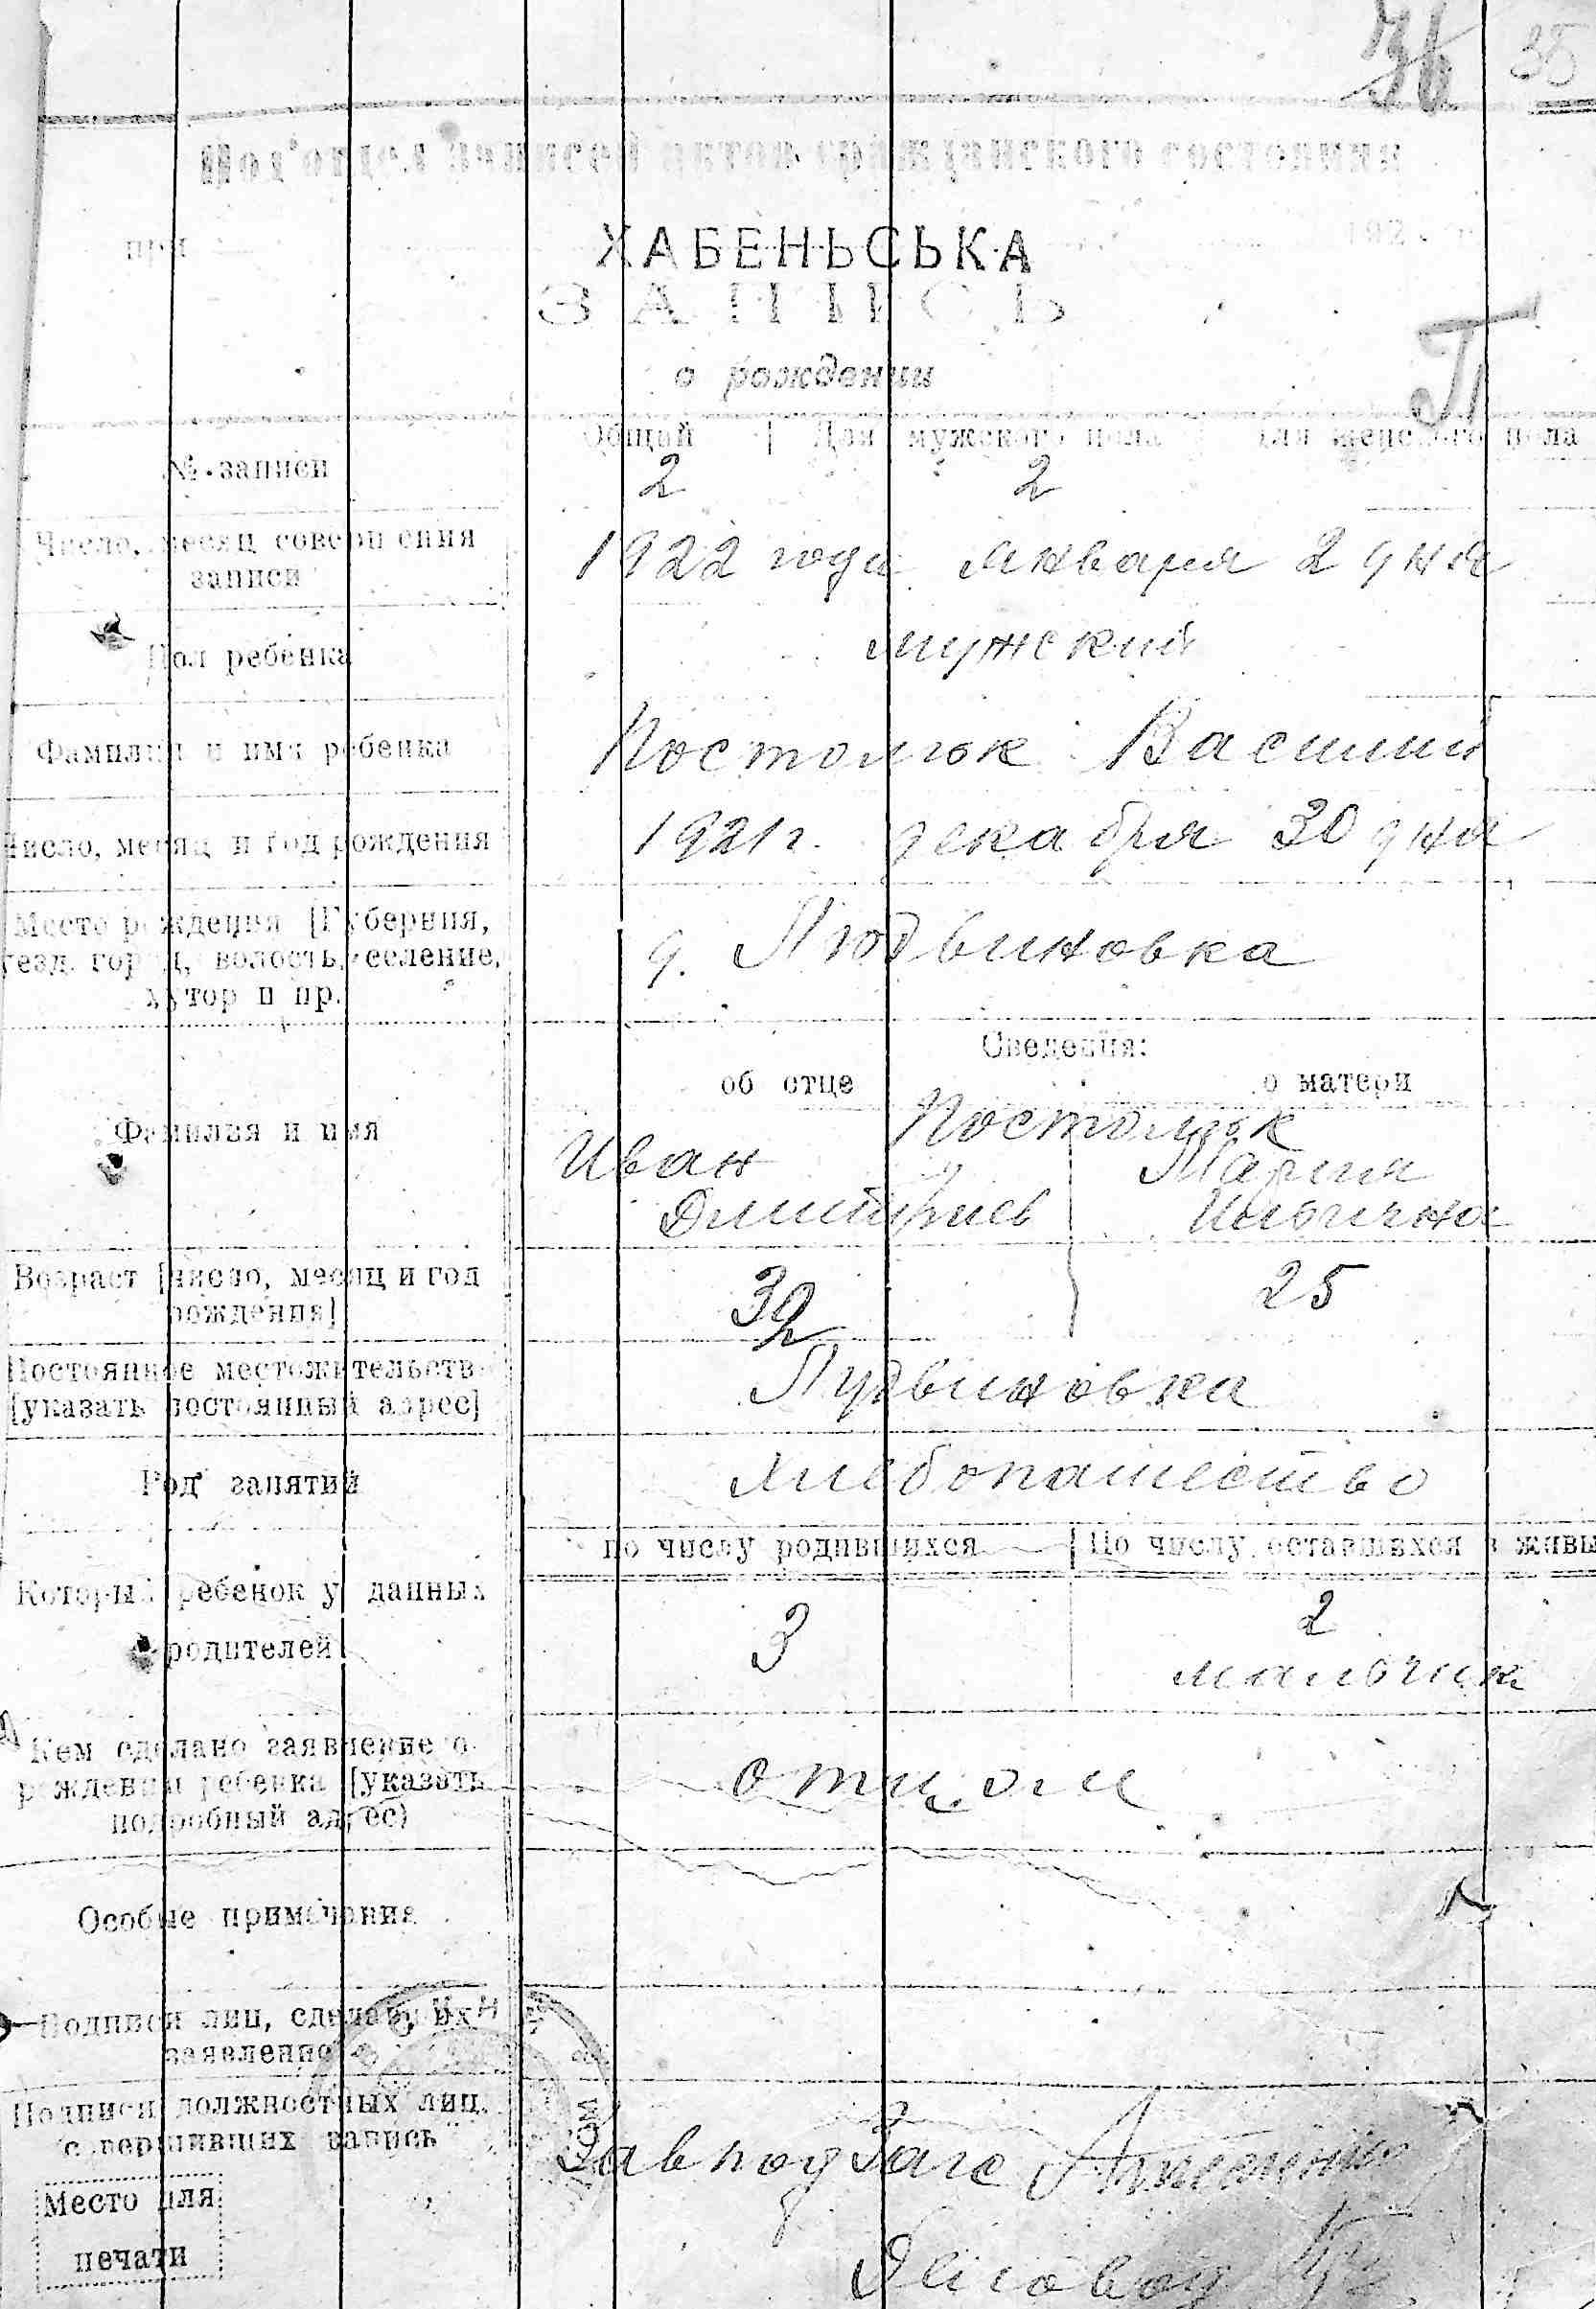 36 35
Под'отдел записей актов гражданского состояния
при 192
ХАБЕНЬСЬКА
ЗАПИСЬ
о рождении
П
Общий | Для мужского пола | Для женского пола
№ записи 2 2
Число, месяц совершения
записи
1922 года января 2 дня
Пол ребенка мужский
Фамилия и имя ребенка Постолюк Василий
Число, месяц и год рождения 1921 г. декабря 30 дня
Место рождения [Губерния,
уезд, город, волость, селение,
хутор и пр.
д. Людвиновка
Сведения:
об отце о матери
Фамилия и имя Постолюк
Иван Мария
Дмитриев Ильична
Возраст [число, месяц и год
рождения]
32 25
Постоянное местожительств
[указать постоянный адрес]
Лудвиновка
Род занятий хлебопашество
по числу родившихся | По числу оставшихся в живы
Который ребенок у данных
родителей
3 2
мальчик
Кем сделано заявление о
рождении ребенка [указать
подробный адрес)
отцом
Особые примечания
Подписи лиц, сделавших
заявление
Подписи должностных лиц,
совершивших запись
Завподзагс
Место для
печати
Деловод